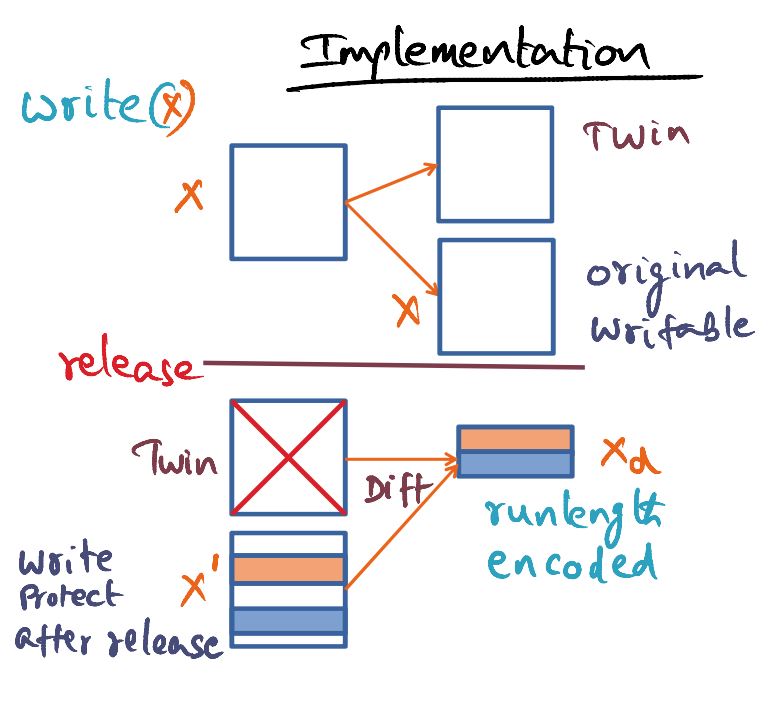 Implementation
write(x)
X
Twin
original
writable
X
release
Twin
Diff
Xd
runlength
encoded
write
Protect
after release
X'